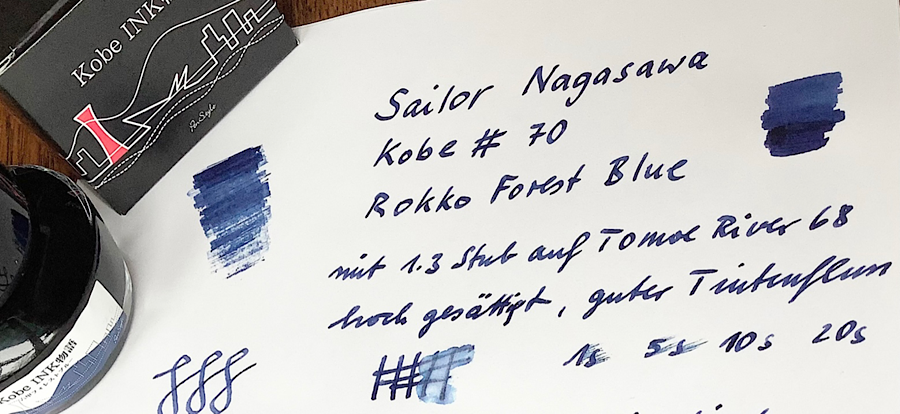 Kobe INK
PenStyle
Sailor Nagasawa
Kobe # 70
Rokko Forest Blue
mit 1.3 Stub auf Tomoe River 68
hoch gesättigt, guter Tintenfluss
1s 5s 10s 20s
Kobe INK物語